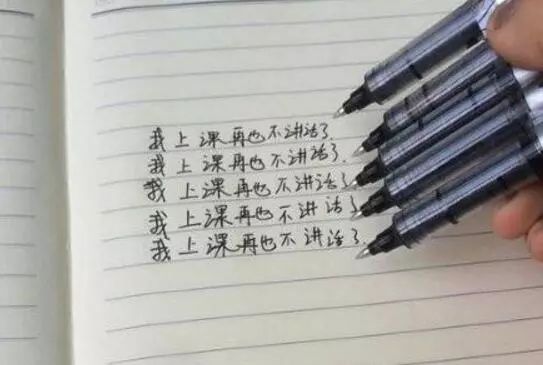 我上课再也不讲话了.
我上课再也不讲话了.
我上课再也不讲话了
我上课再也不讲话了
我上课再也不讲话了.